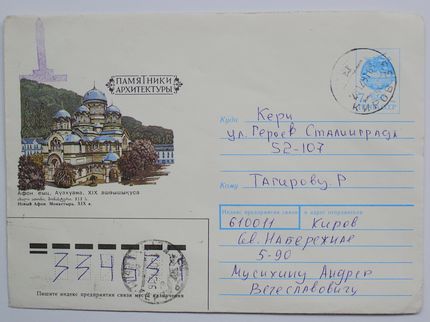 ПАМЯТНИКИ
АРХИТЕКТУРЫ
СССР
КИРОВ
Куда Керч
ул. Героев Сталинграда
52-107
Кому Тагирову. Р
Афон ҿыц. Ауахуама. XIX ашәышықәса
Новый Афон. Монастырь. XIX в.
Индекс предприятия связи и адрес отправителя
610011 Киров
Св. Набережне
5-90
Мусихину Андрею
Вячеславовичу
3344
Пишите индекс предприятия связи места назначения